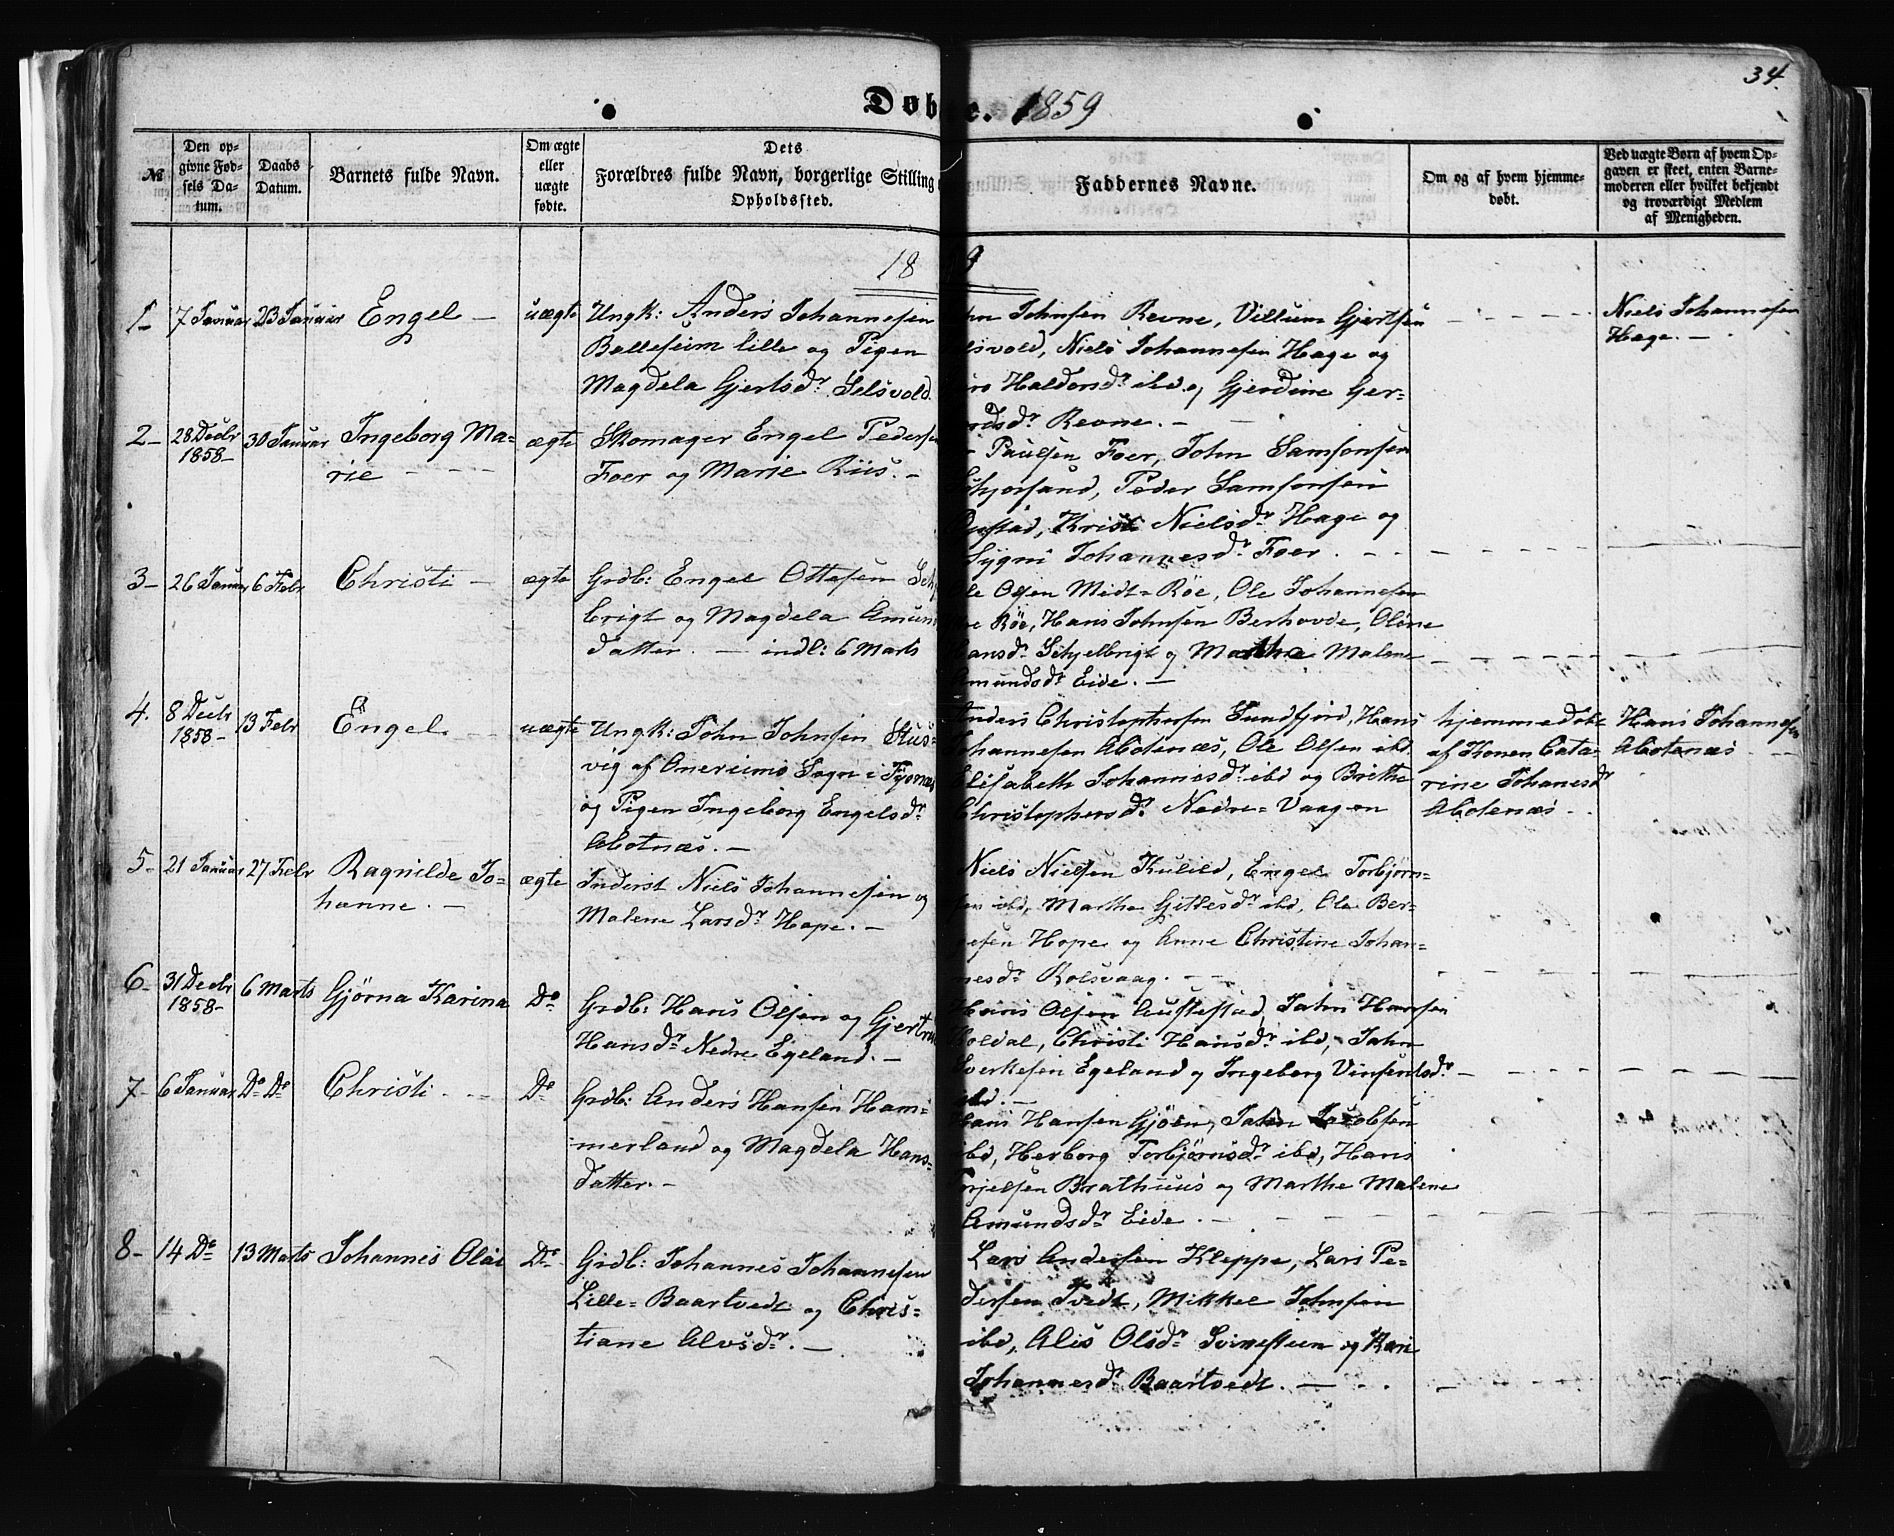 34.
Døb e. 1859
№
Den op-
givne Fød-
sels Da-
tum.
Daabs
Datum.
Barnets fulde Navn.
Om ægte
eller
uægte
fødte.
Dets
Forældres fulde Navn, borgerlige Stilling
Opholdssted.
Faddernes Navne.
Om og af hvem hjemme-
døbt.
Ved uægte Børn af hvem Op-
gaven er skeet, enten Barne-
moderen eller hvilket bekjendt
og troværdigt Medlem
af Menigheden.
18 9
1- 7 Januar 23 Januar Engel - uægte Ungk: Anders Johannesen
Balleseim lille og Pigen
Magdela Gjertsdr. Selsvold.
hn Johnsen Revne, Villum Gjertsen
lsvold, Niels Johannesen Hage og
Haldorsdr. ibd. og Gjerdine Ger-
dsdr. Revne. -
Niels Johannesen
Hage. -
2- 28 Decbr 1858- 30 Januar Ingeborg Ma-
rie - ægte Skomager Engel Pedersen
Foer og Marie Riis. -
Paulsen Foer, John Samsonsen
Skjorsand, Peder Samsonsen
Kristi Nielsdr. Hage og
Sygni Johannesdr. Foer.
3- 26 Januar 6 Febr Christi - ægte Grdb: Engel Ottesen
brigt og Magdela Amun
datter. - indl: 6 Marts
Ole Olsen Midt-Röe, Ole Johannesen
Röe, Hans Johnsen Berhovde, Oline
Hansdr. Schjelbrigt og Marthe Malene
Amundsdr. Eide. -
4. 8 Decbr 1858- 13 Febr Engel. uægte Ungk: John Johnsen Hus-
vig af Onereims Sogn i Tysnæs
og Pigen Ingeborg Engelsdr.
Abotnæs. -
Anders Christophersen Sundfjord, Hans
Johannesen Abotenæs, Ole Olsen ibd
Elisabeth Johannesdr. ibd og Brithe
Christophersdr. Nedre-Vaagen
hjemmedøbt
af Konen Cata-
rine Johanesdr
Abotenæs.
Hans Johannesen
Abotenæs
5- 21 Januar 27 Febr Ragnilde Jo-
hanne. - ægte Inderst Niels Johannesen og
Malene Larsdr. Hope. -
Niels Nielsen Kulild, Engel Torbjørn-
sen ibd, Marthe Gitlesdr. ibd, Ole Ber-
gesen Hope og Anne Christine Johan-
nesdr. Rolsvaag.
6- 31 Decbr 1858- 6 Marts Gjörna Karina Do Grdb: Hans Olsen og Gjertru
Hansdr. Nedre Egeland. -
Hans Olsen Austestad, John Hansen
Holdal, Christi Hansdr. ibd, John
Sverkesen Egeland og Ingeborg Vinsentsdr.
ibd. -
7- 6 Januar Do Do Christi. Do Grdb: Anders Hansen Ham-
merland og Magdela Hans-
datter. -
Hans Hansen Gjöen, John Jacobsen
ibd, Herborg Torbjörnsdr. ibd, Hans
Torjelsen Brathuus og Marthe Malene
Amundsdr. Eide. -
8- 14 Do 13 Marts Johannes Olai Do Grdb: Johannes Johannesen
Lille-Baartvedt og Chris-
tiane Alvsdr. -
Lars Andersen Kleppe, Lars Pe-
dersen Tvedt, Mikkel Johnsen
ibd, Alis Olsdr. Svinesteen og Kari
Johannesdr. Baartvedt. -